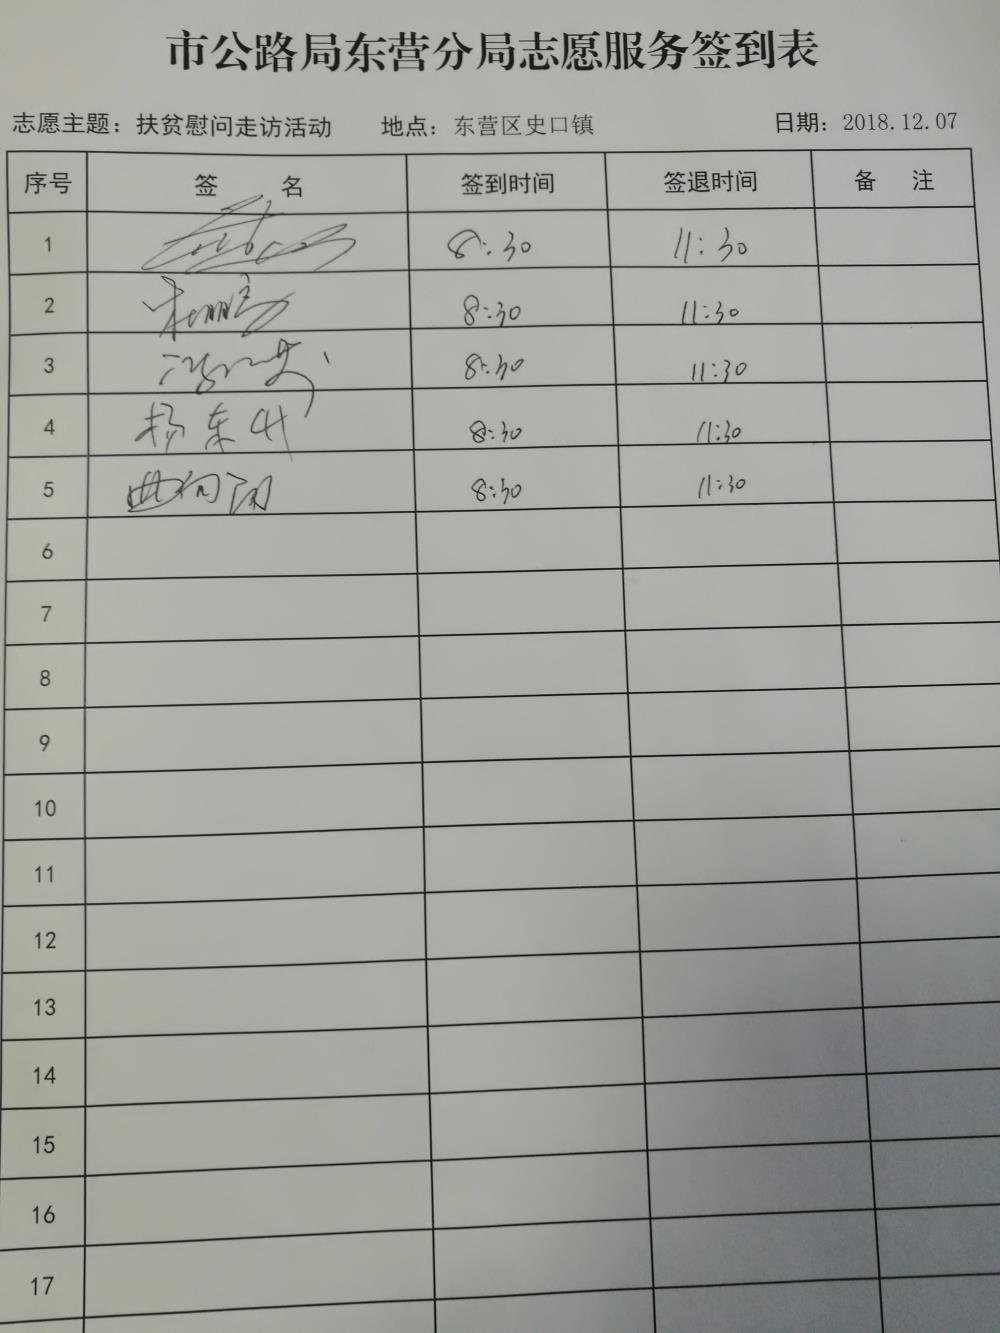 市公路局东营分局志愿服务签到表
志愿主题：扶贫慰问走访活动 地点：东营区史口镇 日期：2018.12.07
序号 签 名 签到时间 签退时间 备 注
1 8:30 11:30
2 8:30 11:30
3 8:30 11:30
4 8:30 11:30
5 曲向阳 8:30 11:30
6
7
8
9
10
11
12
13
14
15
16
17